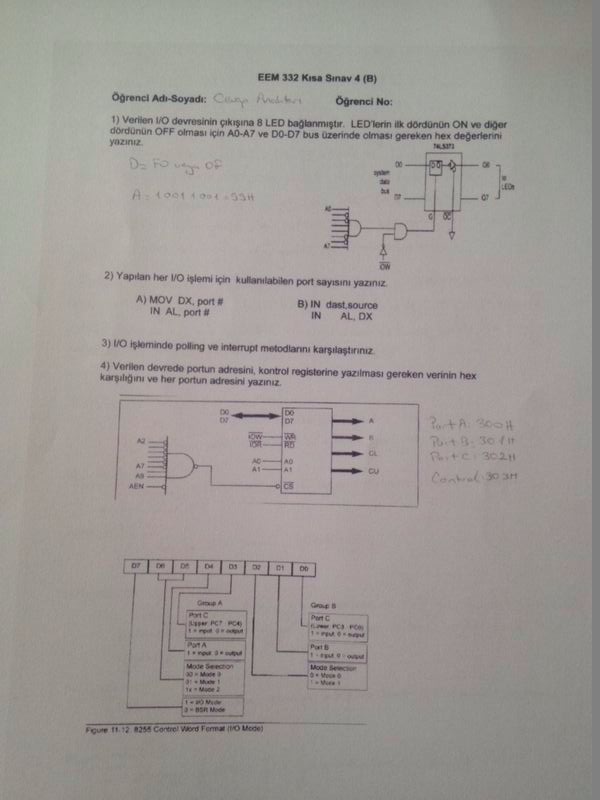 EEM 332 Kısa Sınav 4 (B)
Öğrenci Adı-Soyadı:
Öğrenci No:
1) Verilen I/O devresinin çıkışına 8 LED bağlanmıştır. LED'lerin ilk dördünün ON ve diğer
dördünün OFF olması için A0-A7 ve D0-D7 bus üzerinde olması gereken hex değerlerini
yazınız.
D= F0 veya 0F
A= 10011001=99H
74LS373
system
data
bus
D0
D7
D Q
Q0
Q7
to
LEDs
G
OC
A0
A7
IOW
2) Yapılan her I/O işlemi için kullanılabilen port sayısını yazınız.
A) MOV DX, port #
IN AL, port #
B) IN dast,source
IN AL, DX
3) I/O işleminde polling ve interrupt metodlarını karşılaştırınız.
4) Verilen devrede portun adresini, kontrol registerine yazılması gereken verinin hex
karşılığını ve her portun adresini yazınız.
D0
D7
D0
D7
A
IOW
WR
B
IOR
RD
CL
A0
A0
A1
A1
CU
A2
A7
A9
AEN
CS
Port A: 300H
Port B: 301H
Port C: 302H
Control: 303H
D7 D6 D5 D4 D3 D2 D1 D0
Group A
Port C
(Upper PC7 - PC4)
1 = input 0 = output
Port A
1 = input 0 = output
Mode Selection
00 = Mode 0
01 = Mode 1
1x = Mode 2
1 = I/O Mode
0 = BSR Mode
Group B
Port C
(Lower PC3 - PC0)
1 = input 0 = output
Port B
1 = input 0 = output
Mode Selection
0 = Mode 0
1 = Mode 1
Figure 11-12. 8255 Control Word Format (I/O Mode)